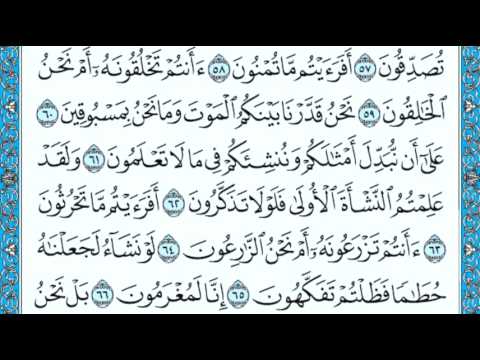 تُصَدِّقُونَ ٥٧ أَفَرَءَيْتُم مَّا تُمْنُونَ ٥٨ ءَأَنتُمْ تَخْلُقُونَهُۥٓ أَمْ نَحْنُ
ٱلْخَٰلِقُونَ ٥٩ نَحْنُ قَدَّرْنَا بَيْنَكُمُ ٱلْمَوْتَ وَمَا نَحْنُ بِمَسْبُوقِينَ ٦٠
عَلَىٰٓ أَن نُّبَدِّلَ أَمْثَٰلَكُمْ وَنُنشِئَكُمْ فِى مَا لَا تَعْلَمُونَ ٦١ وَلَقَدْ
عَلِمْتُمُ ٱلنَّشْأَةَ ٱلْأُولَىٰ فَلَوْلَا تَذَكَّرُونَ ٦٢ أَفَرَءَيْتُم مَّا تَحْرُثُونَ
٦٣ ءَأَنتُمْ تَزْرَعُونَهُۥٓ أَمْ نَحْنُ ٱلزَّٰرِعُونَ ٦٤ لَوْ نَشَآءُ لَجَعَلْنَٰهُ
حُطَٰمًا فَظَلْتُمْ تَفَكَّهُونَ ٦٥ إِنَّا لَمُغْرَمُونَ ٦٦ بَلْ نَحْنُ